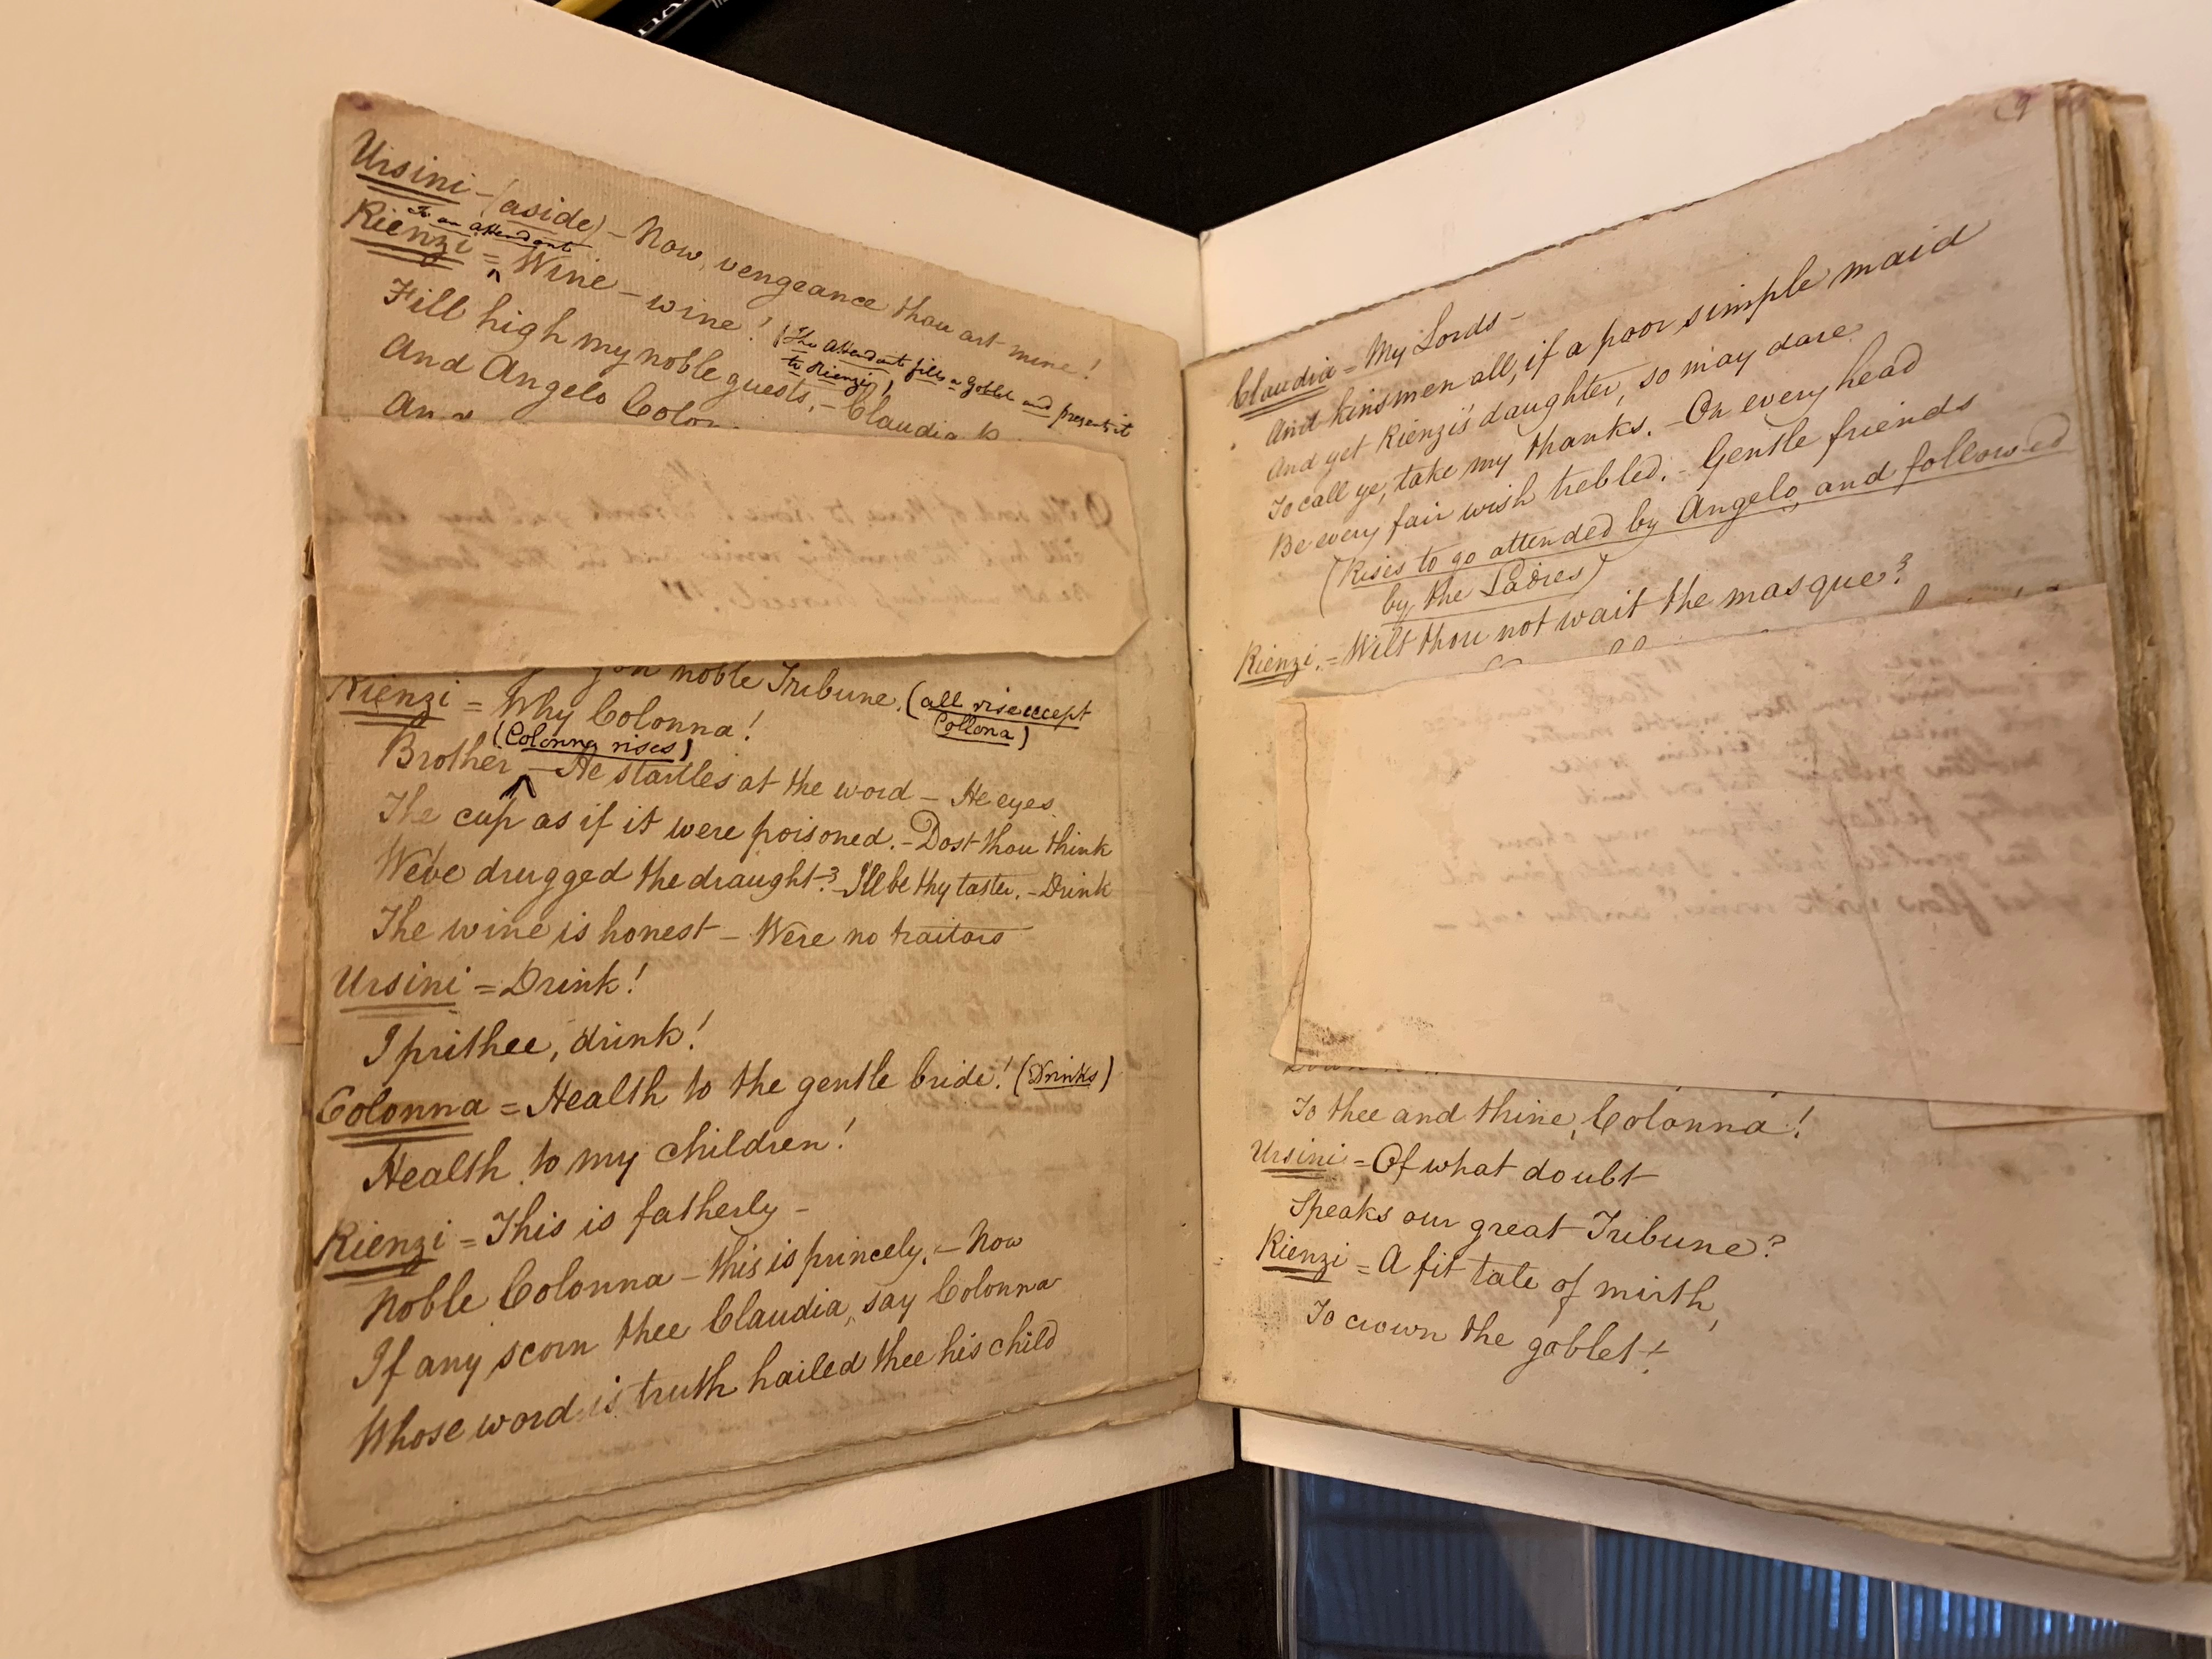 Ursini - (aside) - Now, vengeance thou art mine!
To an attendant
Rienzi = ^ Wine - wine!
(The Attendant fills a Goblet and presents it
to Rienzi)
Fill high my noble guests. - Claudia
And Angelo
Noble Tribune. (all rise except
Collona)
Rienzi = Why Colonna!
(Colonna rises)
Brother ^ - He startles at the word - He eyes
The cup as if it were poisoned. - Dost thou think
Weve drugged the draught? - I'll be thy taster. - Drink
The wine is honest - Were no traitors
Ursini = Drink!
I prithee, drink!
Colonna = Health to the gentle bride! (Drinks)
Health to my children!
Rienzi = This is fatherly -
Noble Colonna - this is princely. - Now
If any scorn thee Claudia, say Colonna
Whose word is truth hailed thee his child
9
Claudia = My Lords -
And kinsmen all, if a poor simple maid
And yet Rienzi's daughter, so may dare
To call ye, take my thanks. - On every head
Be every fair wish trebled. - Gentle friends
(Rises to go attended by Angelo, and followed
by the Ladies)
Rienzi. = Wilt thou not wait the masque?
To thee and thine, Colonna!
Ursini = Of what doubt
Speaks our great Tribune?
Rienzi = A fit tale of mirth,
To crown the goblet!